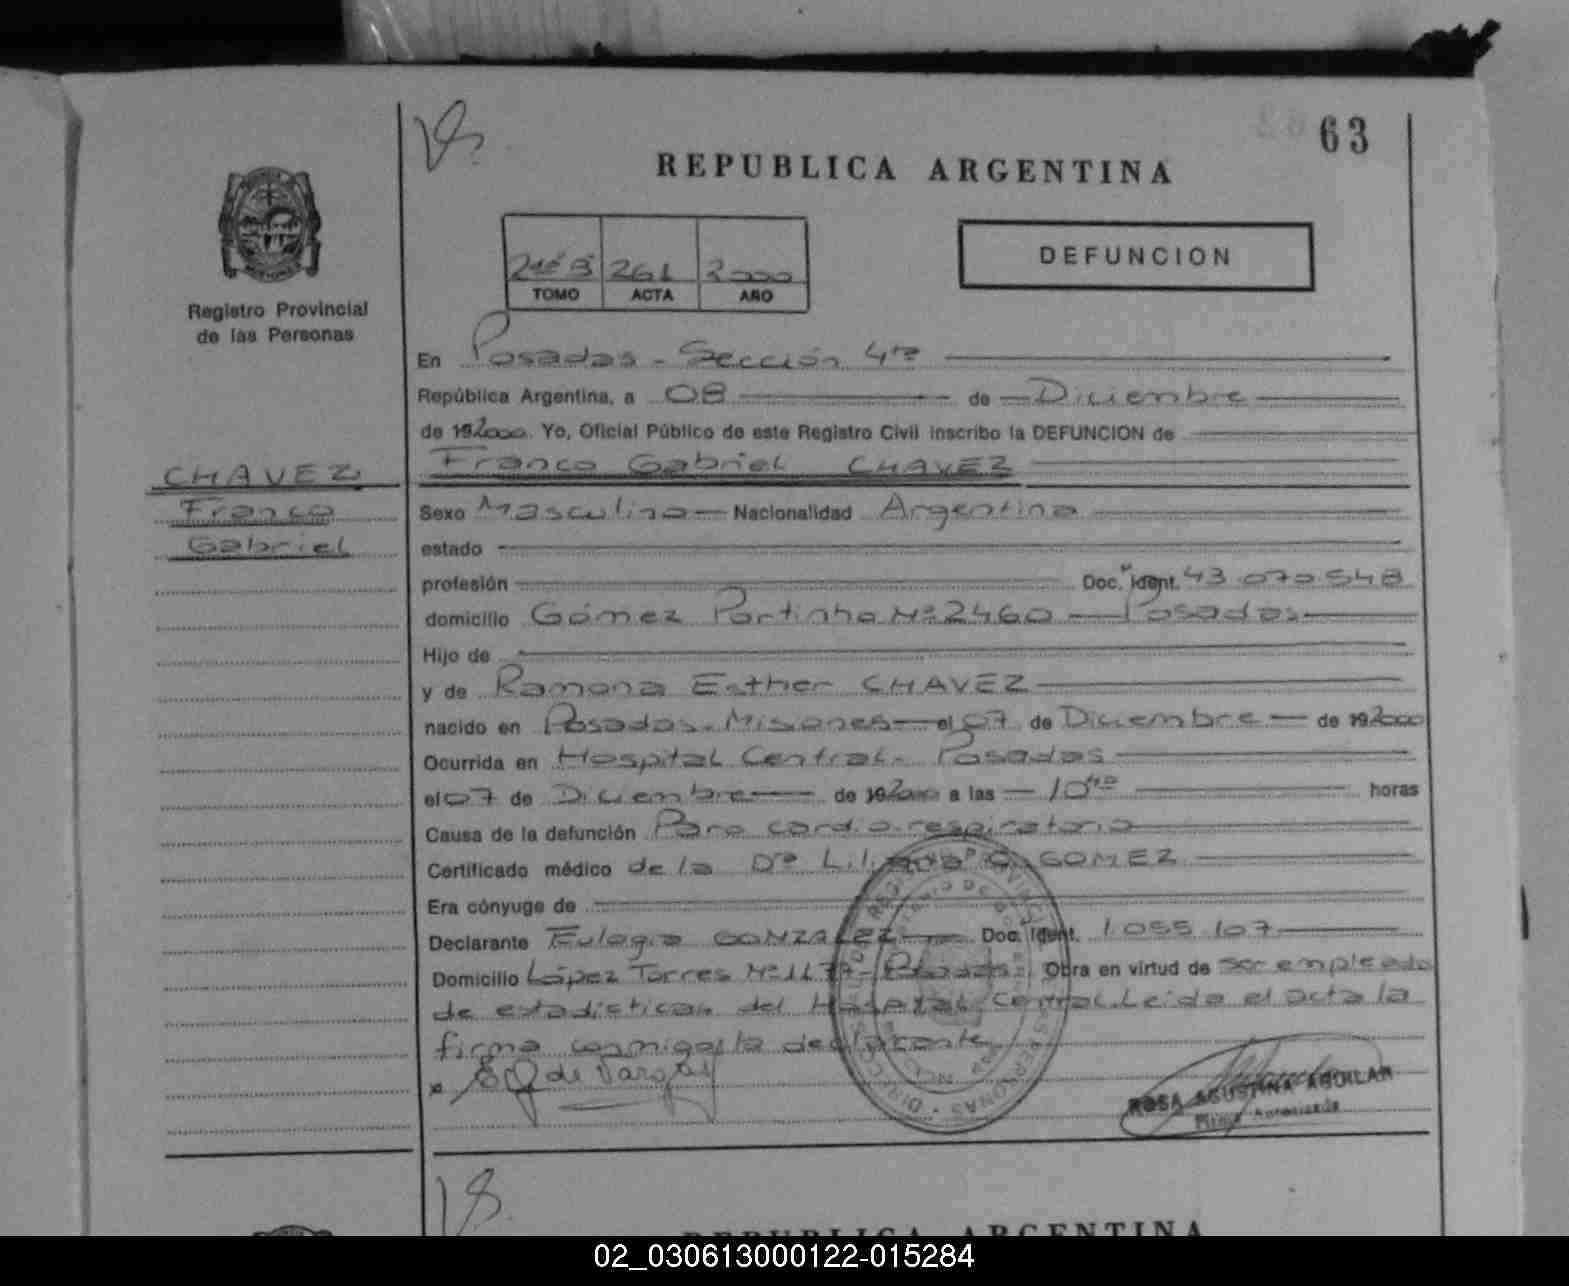 63
REPUBLICA ARGENTINA
DEFUNCION
261 2000
TOMO ACTA AÑO
Registro Provincial
de las Personas
En Posadas - Sección 4ta
República Argentina, a 08 de Diciembre
de 192000. Yo, Oficial Público de este Registro Civil inscribo la DEFUNCION de
CHAVEZ
Franco
Gabriel
Franco Gabriel CHAVEZ
Sexo Masculino Nacionalidad Argentina
estado
profesión Doc. Ident. 43.070.548
domicilio Gómez Portinho Nº 2460 - Posadas
Hijo de
y de Ramona Esther CHAVEZ
nacido en Posadas - Misiones el 07 de Diciembre de 192000
Ocurrida en Hospital Central - Posadas
el 07 de Diciembre de 192000 a las 10 horas
Causa de la defunción Paro cardio respiratorio
Certificado médico de la Dra Liliana GOMEZ
Era cónyuge de
Declarante Eulogia GONZALEZ Doc. Ident. 1.055.107
Domicilio López Torres Nº 1177 - Posadas Obra en virtud de ser empleada
de estadísticas del Hospital Central. Leida el acta la
firma conmigo la declarante
de Vargas
ROSA AGUSTINA AGUILAR
Firma Autorizada
REPUBLICA ARGENTINA
02_030613000122-015284